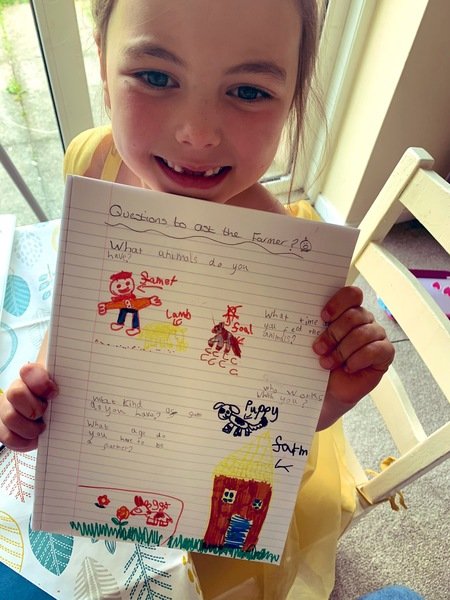 Questions to ask the Farmer?
What animals do you
have?
Lamb
foal
What time
you feed the
animals?
who works
with you?
What kind
do you have?
Puppy
What age do
you have to be
a
farm